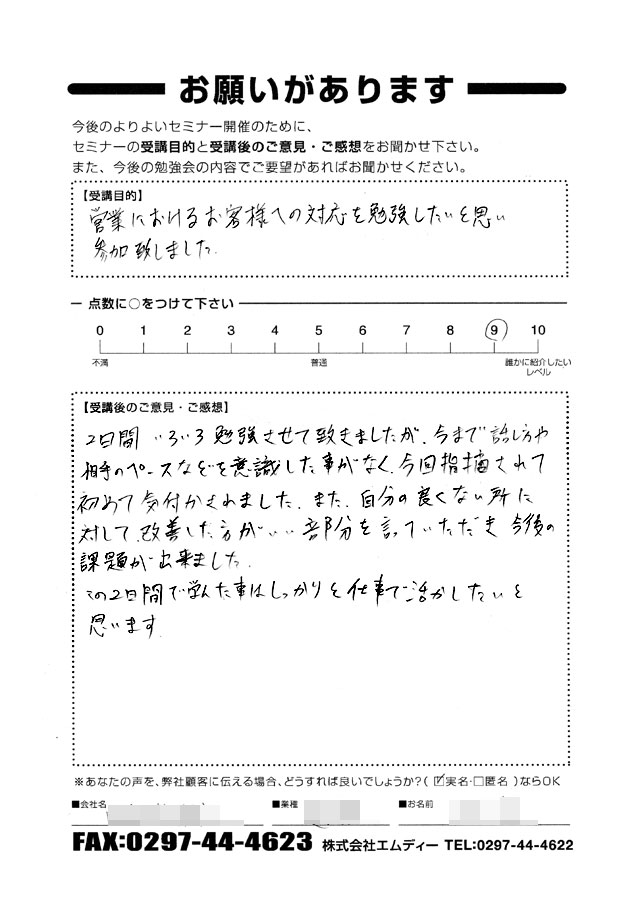 お願いがあります
今後のよりよいセミナー開催のために、
セミナーの受講目的と受講後のご意見・ご感想をお聞かせ下さい。
また、今後の勉強会の内容でご要望があればお聞かせください。
【受講目的】
営業におけるお客様への対応を勉強したいと思い
参加致しました.
点数に○をつけて下さい
0 1 2 3 4 5 6 7 8 9 10
不満 普通 誰かに紹介したい
レベル
【受講後のご意見・ご感想】
2日間 いろいろ勉強させて致きましたが、今まで話し方や
相手のペースなどを意識した事がなく、今回指摘されて
初めて気付かされました。また、自分の良くない所に
対して、改善した方がいい部分を言っていただき 今後の
課題が出来ました.
この2日間で学んだ事はしっかりと仕事で活かしたいと
思います
※あなたの声を、弊社顧客に伝える場合、どうすれば良いでしょうか?( ☑実名・□匿名 )ならOK
■会社名 ■業種 ■お名前
FAX:0297-44-4623 株式会社エムディー TEL:0297-44-4622